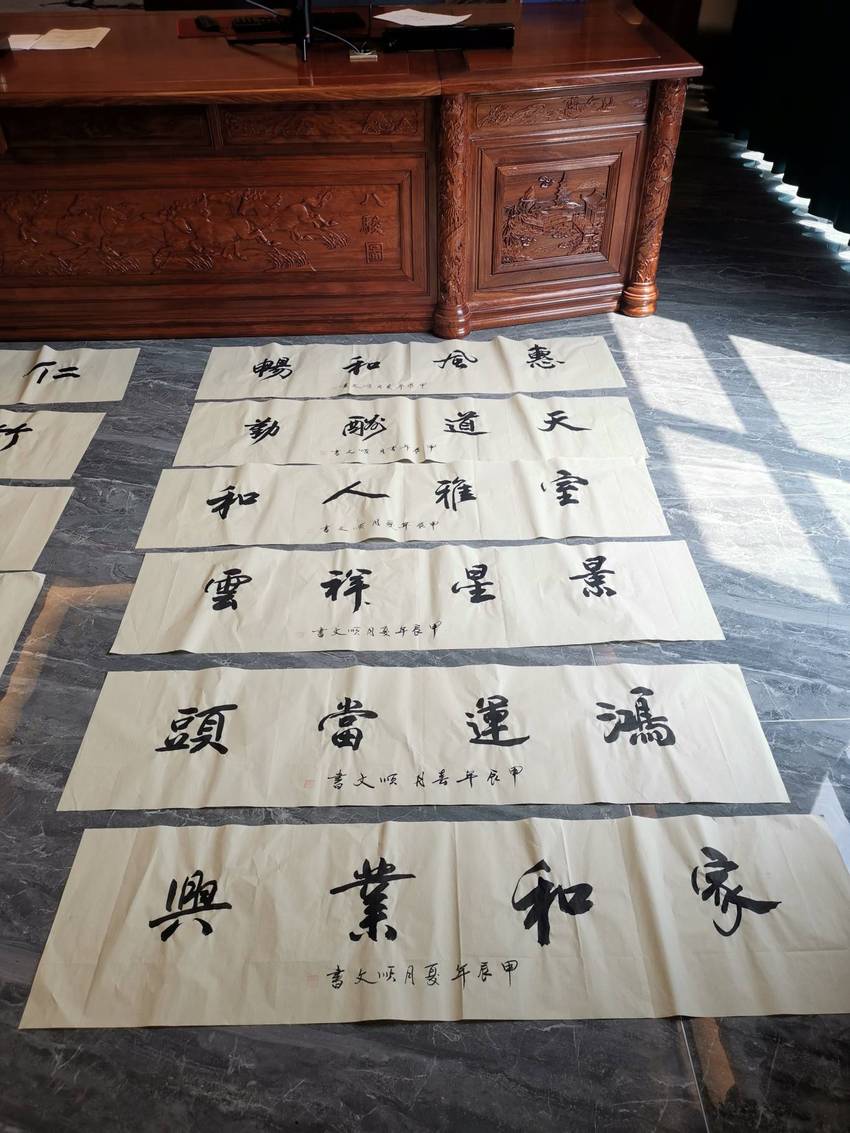 八駿圖
惠風和暢
甲辰年夏月順文書
天道酬勤
甲辰年春月順文書
室雅人和
甲辰年夏月順文書
景星祥雲
甲辰年夏月順文書
鴻運當頭
甲辰年春月順文書
家和業興
甲辰年夏月順文書
仁